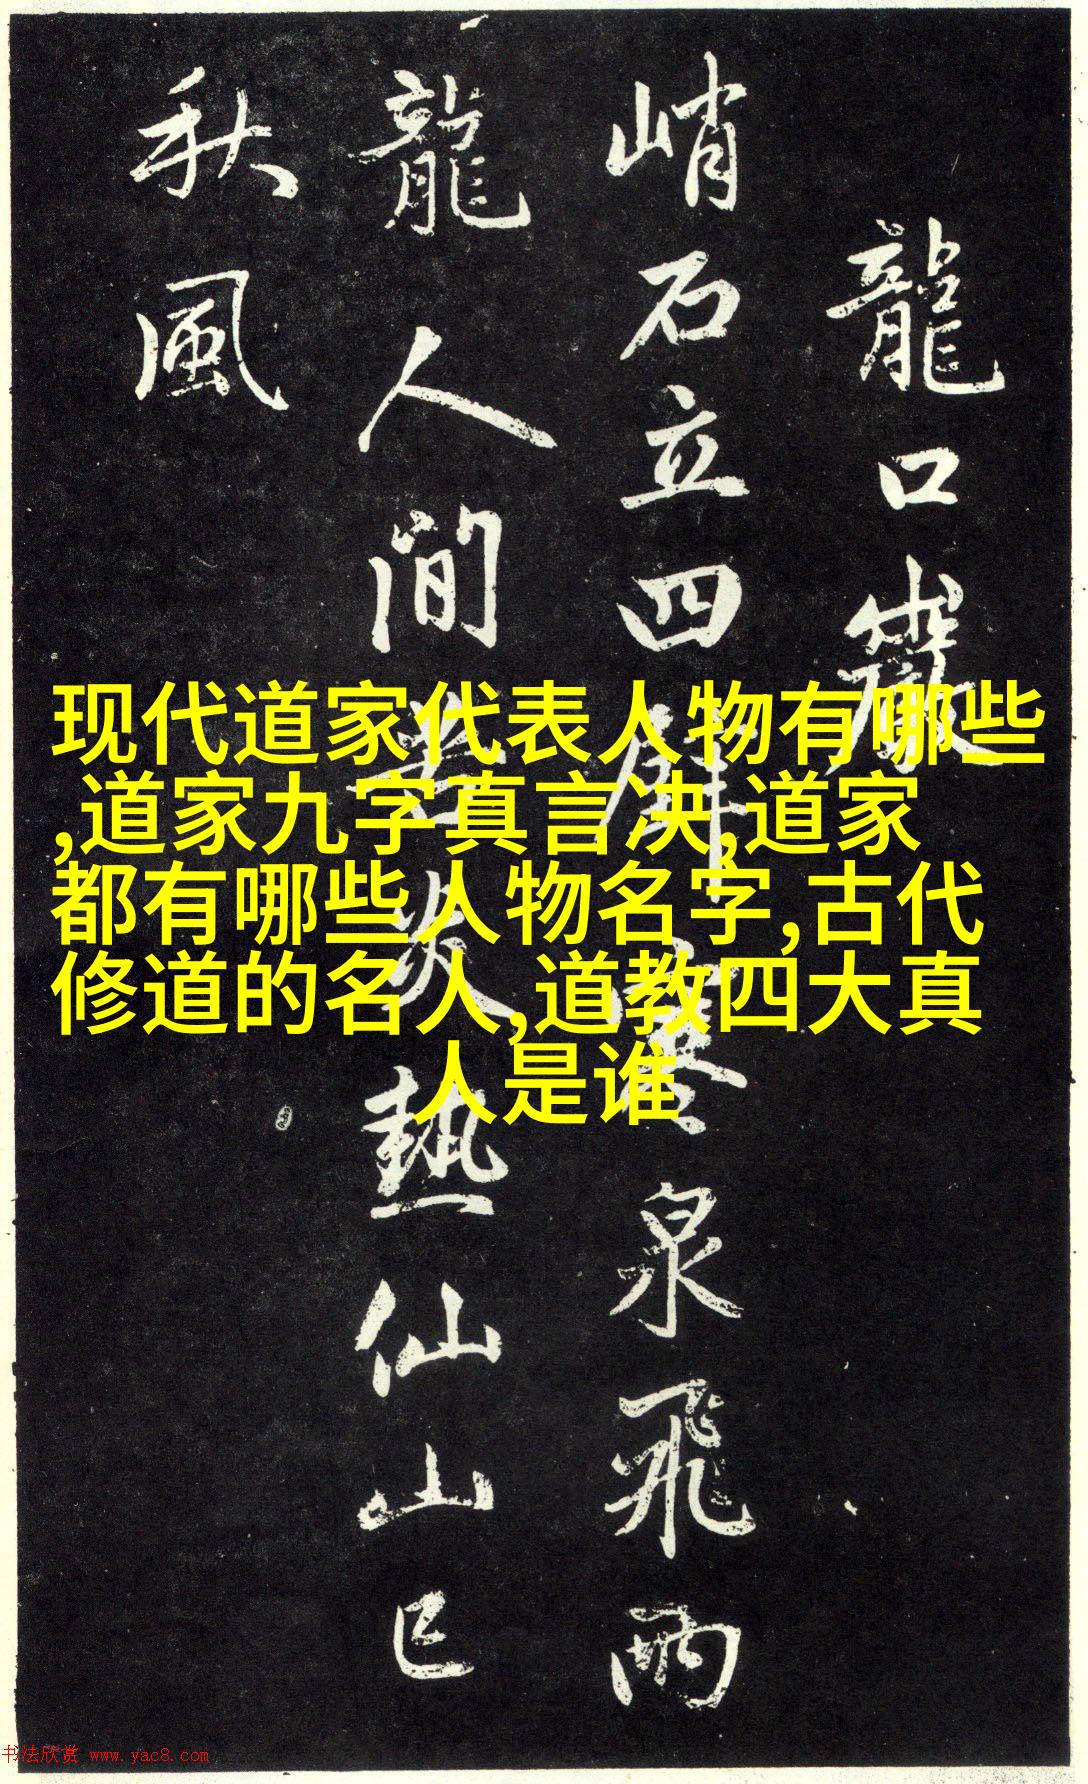 龍口巖
峭石立四 泉飛雨
龍人間 熱仙山已
秋風
现代道家代表人物有哪些
,道家九字真言决,道家
都有哪些人物名字,古代
修道的名人,道教四大真
人是谁
书法欣赏 www.yac8.com